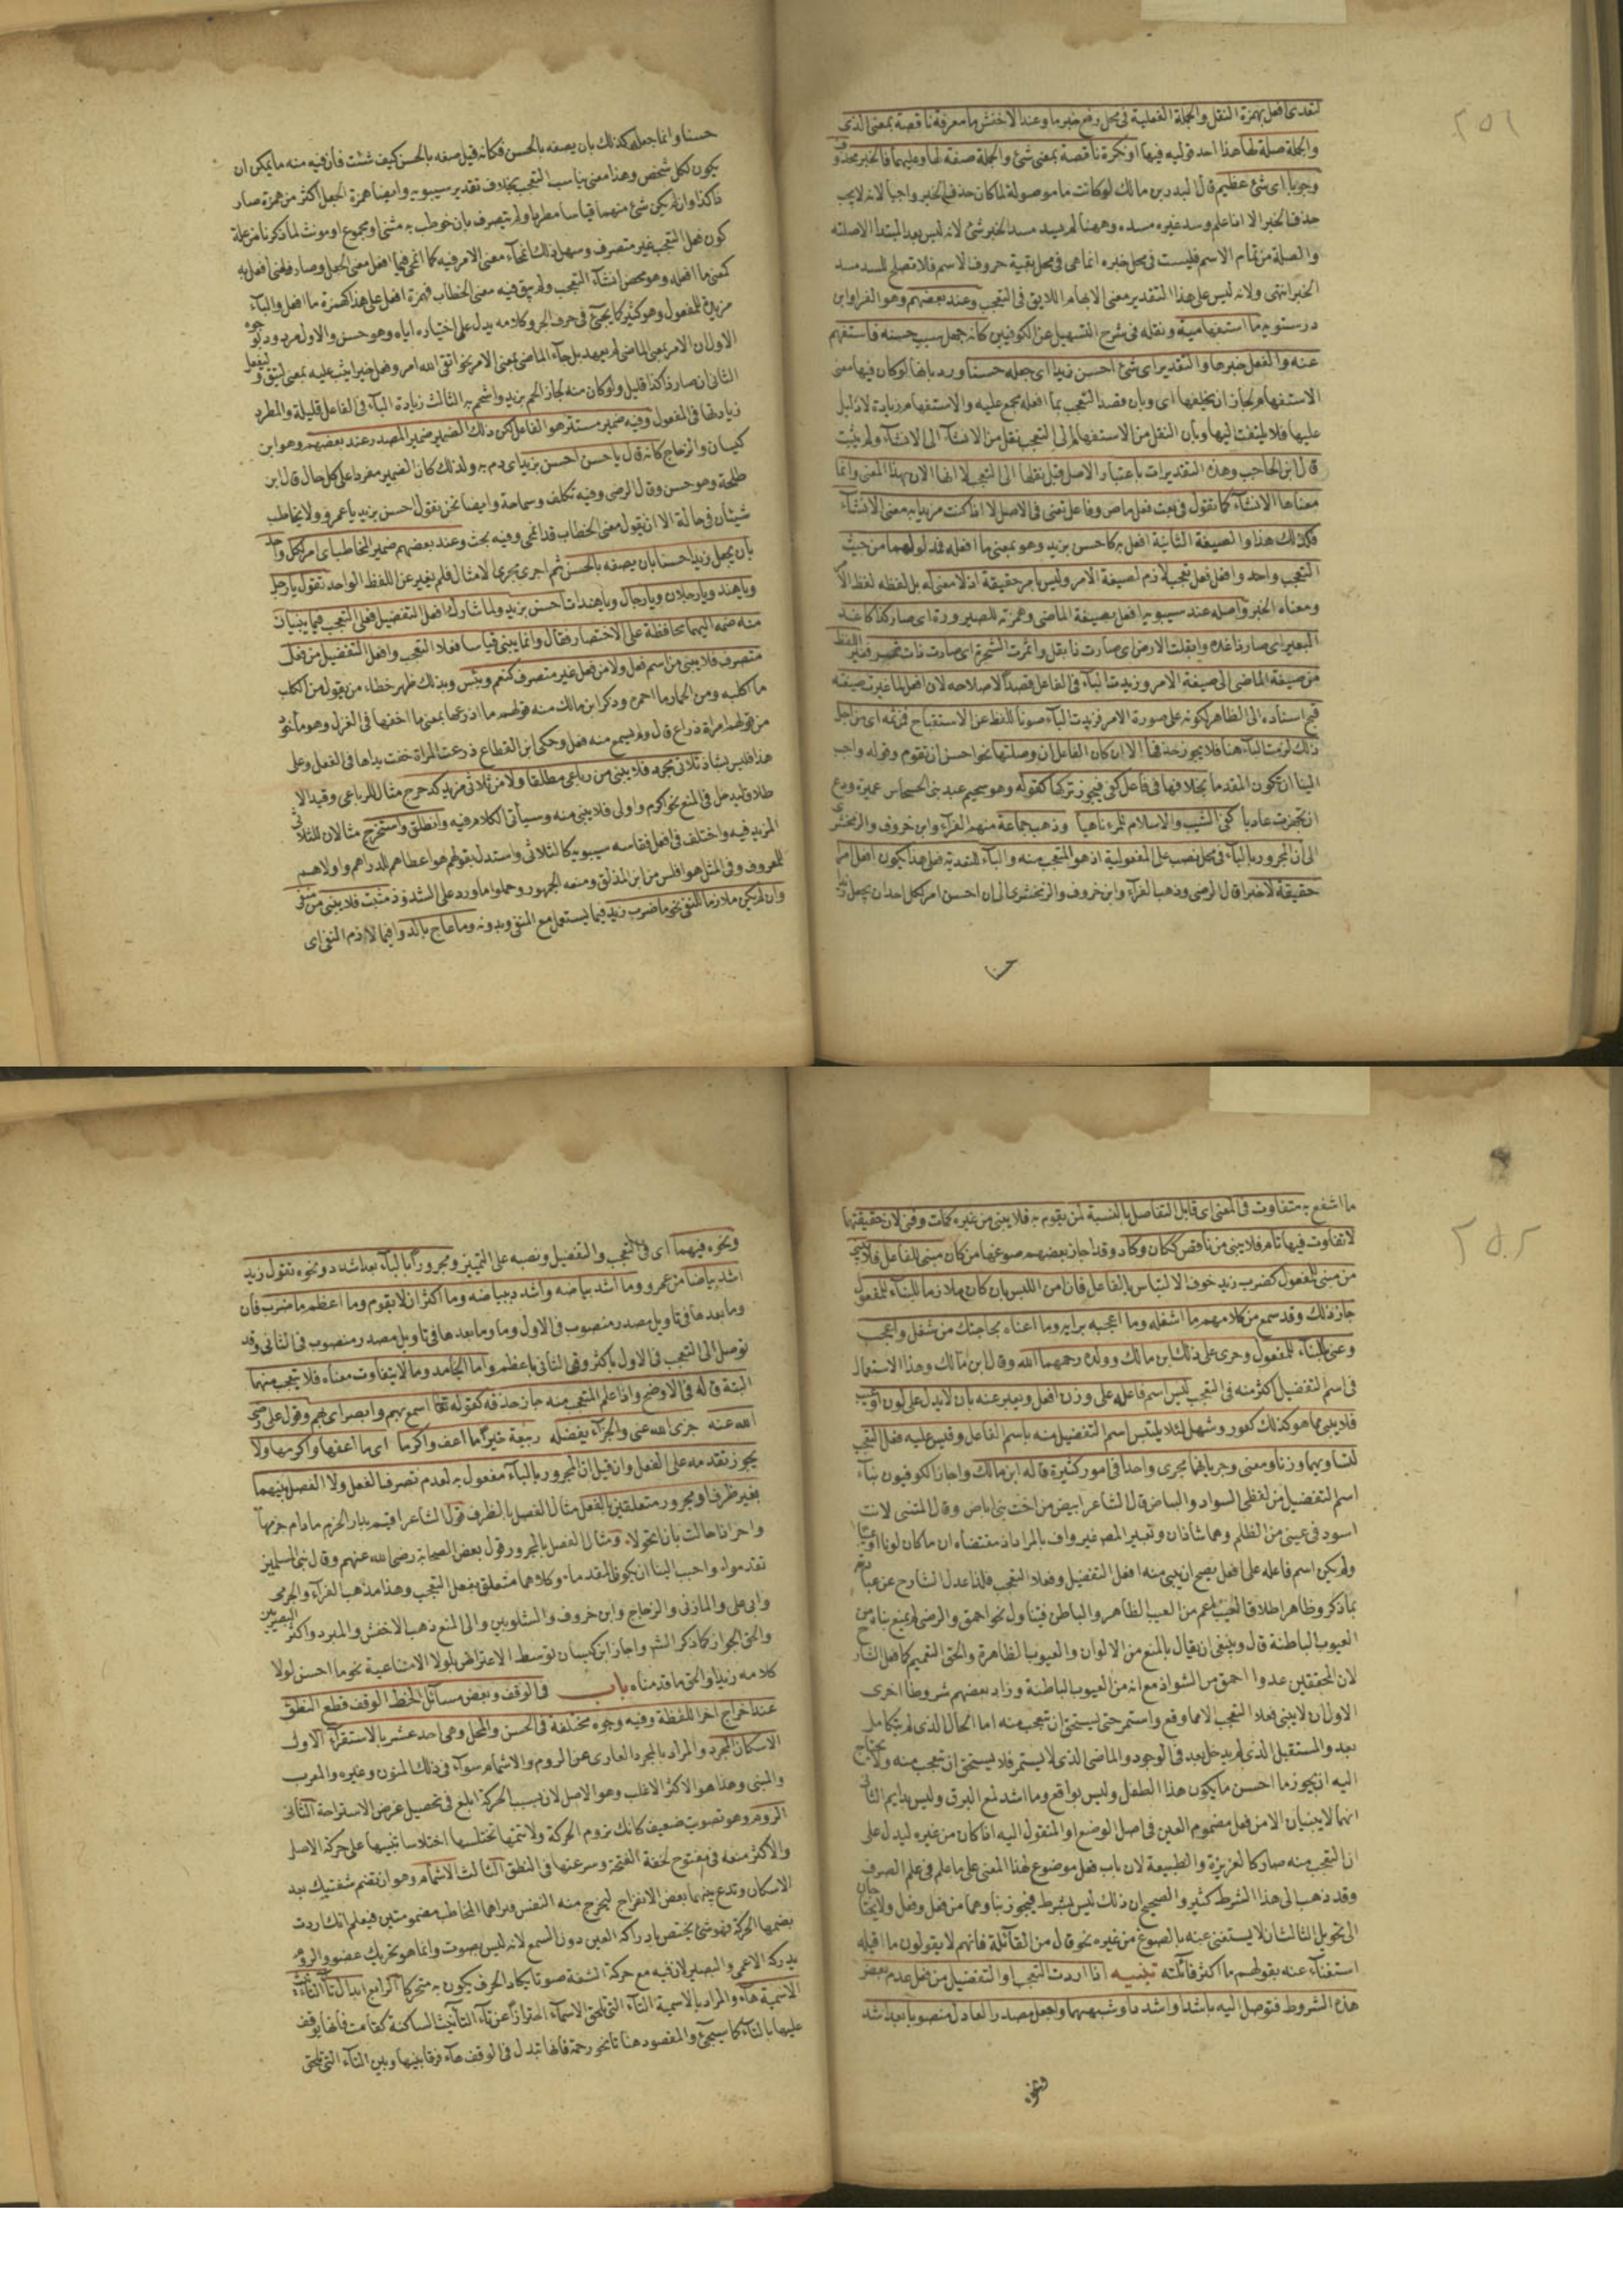 ٢٥١
لتعدى افعل بهمزة النقل والجملة الفعلية فى محل رفع خبر ما وعند الاخفش ما معرفة ناقصة بمعنى الذى
والجملة صلة لها هذا احد قوليه فيها او نكرة ناقصة بمعنى شئ والجملة صفة لها وعليهما فالخبر محذوف
وجوبا اى شئ عظيم قال البدر بن مالك لو كانت ما موصولة لما كان حذف الخبر واجبا لانه لا يجب
حذف الخبر الا اذا علم وسد غيره مسده وههنا لم يسد مسد الخبر شئ لانه ليس بعد المبتدا الا صلته
والصلة من تمام الاسم فليست فى محل خبره انما هى فى محل بقية حروف الاسم فلا تصلح للسد مسد
الخبر انتهى ولانه ليس على هذا التقدير معنى الابهام اللايق فى التعجب وعند بعضهم وهو الفرا وابن
درستويه ما استفهامية ونقله فى شرح التسهيل عن الكوفيين كانه جهل سبب حسنه فاستفهم
عنه والفعل خبرها والتقدير اى شئ احسن زيدا اى جعله حسنا ورد بانها لو كان فيها معنى
الاستفهام لجاز ان يخلفها اى وبان قصد التعجب بما افعله مجمع عليه والاستفهام زيادة لا دليل
عليها فلا يلتفت اليها وبان النقل من الاستفهام الى التعجب نقل من الانشآء الى الانشآء ولم يثبت
قال ابن الحاجب وهذه التقديرات باعتبار الاصل قبل نقلها الى التعجب لا انها الان بهذا المعنى وانما
معناها الانشآء كما تقول فى نعت فعل ماض وفاعل تعنى فى الاصل لا اذا كنت مريدا به معنى الانشآء
فكذلك هذا والصيغة الثانية افعل به كاحسن بزيد وهو بمعنى ما افعله فمدلولهما من حيث
التعجب واحد وافعل فعل تعجب لازم لصيغة الامر وليس بامر حقيقة اذ لا معنى له بل لفظه لفظ الامر
ومعناه الخبر واصله عند سيبويه افعل بصيغة الماضى وهمزته للصيرورة اى صار كذا كاغد
البعير اى صار ذا غدة وابقلت الارض اى صارت ذا بقل واثمرت الشجرة اى صارت ذات ثمر فغير اللفظ
من صيغة الماضى الى صيغة الامر وزيدت البآء فى الفاعل قصدا لاصلاحه لان افعل لما غيرت صيغته
قبح اسناده الى الظاهر لكونه على صورة الامر فزيدت البآء صونا للفظ عن الاستقباح فمن ثمه اى من اجل
ذلك لزمت البآء هنا فلا يجوز حذفها الا ان كان الفاعل ان وصلتها نحو احسن ان تقوم وقوله واحبب
الينا ان تكون المقدما بخلافها فى فاعل كفى فيجوز تركها كقوله وهو سحيم عبد بنى الحسحاس عميرة ودع
ان تجهزت غاديا كفى الشيب والاسلام للمرء ناهيا وذهب جماعة منهم الفرآء وابن خروف والزمخشرى
الى ان المجرور بالبآء فى محل نصب على المفعولية اذ هو المتعجب منه والبآء للتعدية فعلى هذا يكون افعل امرا
حقيقة لا خبرا قال الرضى وذهب الفرآء وابن خروف والزمخشرى الى ان احسن امر لكل احد ان يجعل زيدا
حسنا
حسنا وانما جعله كذلك بان يصفه بالحسن فكانه قيل صفه بالحسن كيف شئت فان فيه منه ما يمكن ان
يكون لكل شخص وهذا معنى يناسب التعجب بخلاف تقدير سيبويه وايضا همزة الجعل اكثر من همزة صار
ذا كذا وان لم يكن شئ منهما قياسا مطردا ولم يتصرف بان خوطب به مثنى او مجموع او مونث لما ذكرنا من علة
كون فعل التعجب غير متصرف وسهل ذلك انمحاء معنى الامر فيه كما انمحى فيما افعل معنى الجعل وصار معنى افعل به
كمعنى ما افعله وهو محض انشآء التعجب ولم يبق فيه معنى الخطاب فهمزة افعل على هذا كهمزة ما افعل والبآء
مزيدة للمفعول وهو كثير كما يجئ فى حرف الجر وكلامه يدل على اختياره اياه وهو حسن والاول مردود بوجوه
الاول ان الامر بمعنى الماضى لم يعهد بل جآء الماضى بمعنى الامر نحو اتقى الله امرؤ فعل خيرا يثب عليه بمعنى ليتق وليفعل
الثانى ان صار ذا كذا قليل ولو كان منه لجاز الحم بزيد واشحم به الثالث زيادة البآء فى الفاعل قليلة والمطرد
زيادتها فى المفعول وفيه ضمير مستتر هو الفاعل لكن ذلك الضمير ضمير المصدر عند بعضهم وهو ابن
كيسان والزجاج كانه قال يا حسن احسن بزيد اى دم به ولذلك كان الضمير مفردا على كل حال قال ابن
طلحة وهو حسن وقال الرضى وفيه تكلف وسماجة وايضا نحن نقول احسن بزيد يا عمرو ولا يخاطب
شيئان فى حالة الا ان يقول معنى الخطاب قد انمحى وفيه بحث وعند بعضهم ضمير المخاطب اى امر لكل واحد
بان يجعل زيدا حسنا بان يصفه بالحسن ثم اجرى مجرى الامثال فلم يغير عن اللفظ الواحد تقول يا رجل
ويا هند ويا رجلان ويا رجال ويا هندات احسن بزيد ولما شارك افعل التفضيل فعلى التعجب فيما يبنيان
منه ضمه اليهما محافظة على الاختصار فقال وانما يبنى قياسا فعلا التعجب وافعل التفضيل من فعل
متصرف فلا يبنى من اسم فعل ولا من فعل غير متصرف كنعم وبئس وبذلك ظهر خطاء من يقول من الكلب
ما اكلبه ومن الحمار ما احمره وذكر ابن مالك منه قولهم ما اذرعها بمعنى ما اخفها فى الغزل وهو ماخوذ
من قولهم امراة ذراع قال ولم يسمع منه فعل وحكى ابن القطاع ذرعت المراة خفت يداها فى الفعل وعلى
هذا فليس بشاذ ثلاثى مجرد فلا يبنى من رباعى مطلقا ولا من ثلاثى مزيد كدحرج مثال للرباعى وقيد الا
طلاق ليدخل فى المنع نحو اكرم واولى فلا يبنى منه وسيأتى الكلام فيه وانطلق واستخرج مثالان للثلاثى
المزيد فيه واختلف فى افعل فقاسه سيبويه كالثلاثى واستدل بقولهم هو اعطاهم للدراهم واولاهم
للمعروف وفى المثل هو افلس من ابن المذلق ومنعه الجمهور وحملوا ما ورد على الشذوذ مثبت فلا يبنى من منفى
وان لم يكن ملازما للنفى نحو ما ضرب زيد فيما يستعمل مع النفى وبدونه وما عاج بالدوا فيما لازم النفى اى
٢٥٢
ما اشفع به متفاوت فى المعنى اى قابل التفاضل بالنسبة لمن يقوم به فلا يبنى من غيره كمات وفنى لان حقيقتها
لا تفاوت فيها تام فلا يبنى من ناقص ككان وكاد وقد اجاز بعضهم صوغها من كان مبنى للفاعل فلا يبنى
من مبنى للمفعول كضرب زيد خوف الالتباس بالفاعل فان امن اللبس بان كان ملازما للبناء للمفعول
جاز ذلك وقد سمع من كلامهم ما اشغله وما اعجبه برايه وما اعناه بحاجتك من شغل واعجب
وعنى بالبناء للمفعول وجرى على ذلك ابن مالك وولده رحمهما الله وقال ابن مالك وهذا الاستعمال
فى اسم التفضيل اكثر منه فى التعجب ليس اسم فاعله على وزن افعل ويعبر عنه بان لا يدل على لون او عيب
فلا يبنى مما هو كذلك كعور وشهل لئلا يلتبس اسم التفضيل منه باسم الفاعل وقيس عليه فعل التعجب
لتساويهما وزنا ومعنى وجريانهما مجرى واحدا فى امور كثيرة قاله ابن مالك واجاز الكوفيون بناء
اسم التفضيل من لفظى السواد والبياض قال الشاعر ابيض من اخت بنى اباض وقال المتنبى لانت
اسود فى عينى من الظلم وهما شاذان وتعبير المص غير واف بالمراد اذ مقتضاه ان ما كان لونا او عيبا
ولم يكن اسم فاعله على افعل يصح ان يبنى منه افعل التفضيل وفعلا التعجب فلذا عدل الشارح عن عبارته
بما ذكر وظاهر اطلاق العيب اعم من العيب الظاهر والباطن فيتناول نحو احمق والرضى لم يمنع بناءه من
العيوب الباطنة قال وينبغى ان يقال بالمنع من الالوان والعيوب الظاهرة والحق التعميم كما فعل الشارح
لان المحققين عدوا احمق من الشواذ مع انه من العيوب الباطنة وزاد بعضهم شروطا اخرى
الاول ان لا يبنى فعلا التعجب الا مما وقع واستمر حتى يستحق ان تتعجب منه اما الحال الذى لم يتكامل
بعد والمستقبل الذى لم يدخل بعد فى الوجود والماضى الذى لا يستمر فلا يستحق ان تتعجب منه ولا يحتاج
اليه اذ يجوز ما احسن ما يكون هذا الطفل وليس بواقع وما اشد لمع البرق وليس بدايم الثانى
انهما لا يبنيان الا من فعل مضموم العين فى اصل الوضع او المنقول اليه اذا كان من غيره ليدل على
ان التعجب منه صار كالغريزة والطبيعة لان باب فعل موضوع لهذا المعنى على ما علم فى علم الصرف
وقد ذهب الى هذا الشرط كثير والصحيح ان ذلك ليس بشرط فيجوز بناوهما من فعل وفعل ولا يحتاجان
الى تحويل الثالث ان لا يستغنى عنه بالصوغ من غيره نحو قال من القآئلة فانهم لا يقولون ما اقيله
استغنآء عنه بقولهم ما اكثر قآئلته تنبيه اذا اردت التعجب او التفضيل من فعل عدم بعض
هذه الشروط فتوصل اليه باشد او اشدد وشبههما واجعل مصدر العادل منصوبا بعد اشد
ونحوه
ونحوه فيهما اى فى التعجب والتفضيل ونصبه على التمييز ومجرورا بالبآء بعد اشدد ونحوه تقول زيد
اشد بياضا من عمرو وما اشد بياضه واشدد ببياضه وما اكثر ان لا يقوم وما اعظم ما ضرب فان
وما بعدها فى تاويل مصدر منصوب فى الاول وما وما بعدها فى تاويل مصدر منصوب فى الثانى وقد
توصل الى التعجب فى الاول باكثر وفى الثانى باعظم واما الجامد وما لا يتفاوت معناه فلا يتعجب منهما
البتة قاله فى الاوضح واذا علم المتعجب منه جاز حذفه كقوله تعالى اسمع بهم وابصر اى بهم وقول على رضى
الله عنه جزى الله عنى والجزآء بفضله ربيعة خيرا ما اعف واكرما اى ما اعفها واكرمها ولا
يجوز تقدمه على الفعل وان قيل ان المجرور بالبآء مفعول به لعدم تصرف الفعل ولا الفصل بينهما
بغير ظرف او مجرور متعلقين بالفعل مثال الفصل بالظرف قول الشاعر اقيم بدار الحزم ما دام حزمها
واحر اذا حالت بان اتحولا ومثال الفصل بالمجرور قول بعض الصحابة رضى الله عنهم وقال نبى المسلمين
تقدموا واحبب الينا ان يكون المقدما وكلاهما متعلق بفعل التعجب وهذا مذهب الفرآء والجرمى
وابى على والمازنى والزجاج وابن خروف والشلوبين والى المنع ذهب الاخفش والمبرد واكثر البصريين
والحق الجواز كما ذكر الشر واجاز ابن كيسان توسط الاعتراض بلولا الامتناعية نحو ما احسن لولا
كلامه زيدا والحق ما قدمناه باب فى الوقف وبعض مسائل الخط الوقف قطع النطق
عند اخراج اخر اللفظة وفيه وجوه مختلفة فى الحسن والمحل وهى احد عشر بالاستقرآء الاول
الاسكان المجرد والمراد بالمجرد العارى عن الروم والاشمام سوآء فى ذلك المنون وغيره والمعرب
والمبنى وهذا هو الاكثر الاغلب وهو الاصل لان سلب الحركة ابلغ فى تحصيل غرض الاستراحة الثانى
الروم وهو تصويت ضعيف كانك تروم الحركة ولا تتمها تختلسها اختلاسا تنبيها على حركة الاصل
والاكثر منعه فى مفتوح لخفة الفتحة وسرعتها فى النطق الثالث الاشمام وهو ان تضم شفتيك بعد
الاسكان وتدع بينهما بعض الانفراج ليخرج منه النفس فيراهما المخاطب مضمومتين فيعلم انك اردت
بضمها الحركة فهو شئ يختص بادراكه العين دون السمع لانه ليس بصوت وانما هو تحريك عضو والروم
يدركه الاعمى والبصير لان فيه مع حركة الشفة صوتا يكاد الحرف يكون به متحركا الرابع ابدال تآء التانيث
الاسمية هآء والمراد بالاسمية التآء التى تلحق الاسمآء احترازا عن تآء التأنيث الساكنة كقامت فانها يوقف
عليها بالتآء كما سيجئ والمقصود هنا تا نحو رحمة فانها تبدل فى الوقف هآء فرقا بينها وبين التآء التى تلحق